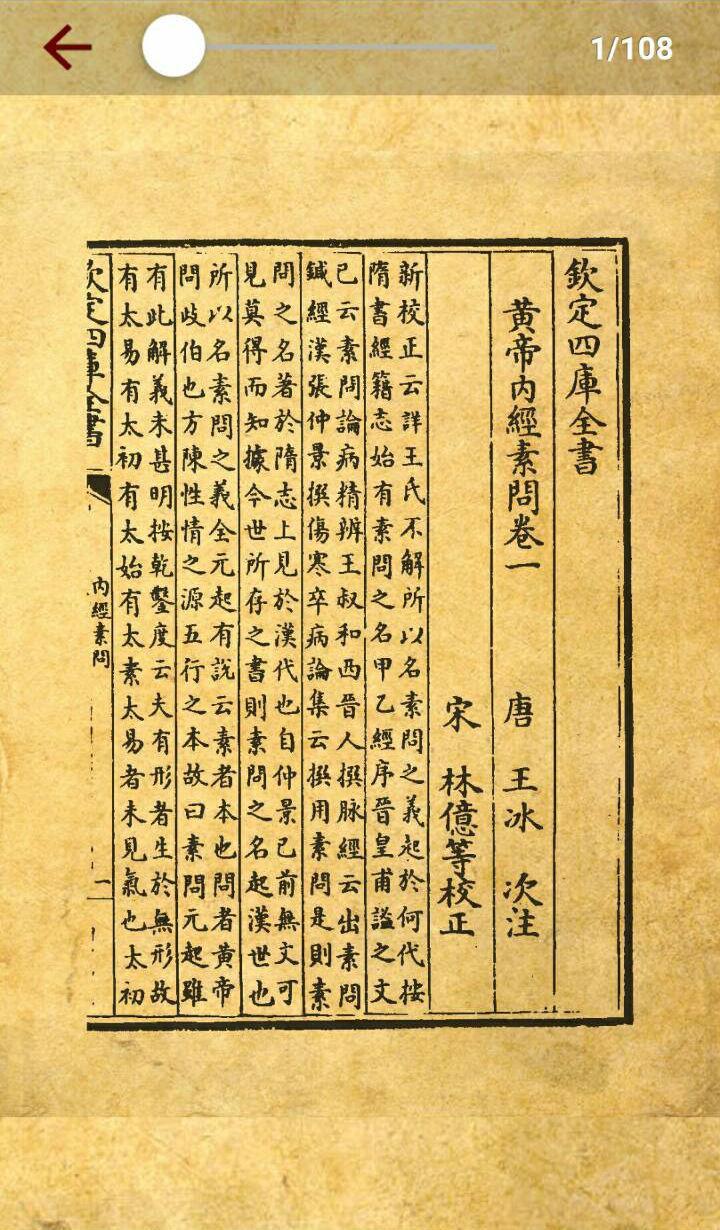 1/108
欽定四庫全書
黃帝內經素問卷一
唐 王冰 次注
宋 林億等校正
新校正云詳王氏不解所以名素問之義起於何代按
隋書經籍志始有素問之名甲乙經序晉皇甫謐之文
已云素問論病精辨王叔和西晉人撰脉經云出素問
鍼經漢張仲景撰傷寒卒病論集云撰用素問是則素
問之名著於隋志上見於漢代也自仲景已前無文可
見莫得而知據今世所存之書則素問之名起漢世也
所以名素問之義全元起有說云素者本也問者黃帝
問歧伯也方陳性情之源五行之本故曰素問元起雖
有此解義未甚明按乾鑿度云夫有形者生於無形故
有太易有太初有太始有太素太易者未見氣也太初
欽定四庫全書
內經素問
一